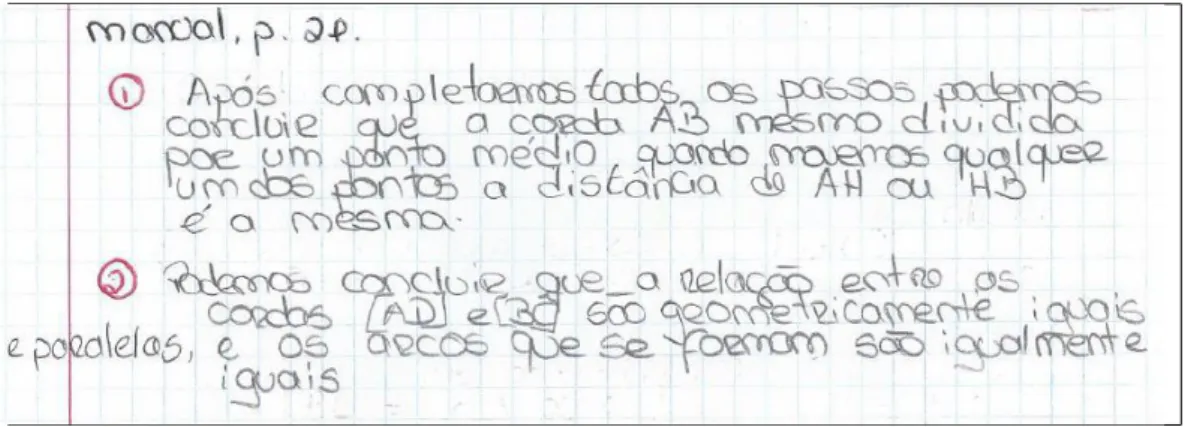 manual, p. 27.
① Após completarmos todos os passos podemos
concluir que a corda AB mesmo dividida
por um ponto médio, quando movermos qualquer
um dos pontos a distância de AH ou HB
é a mesma.
② Podemos concluir que a relação entre as
cordas [AD] e [BC] são geometricamente iguais
e paralelas, e os arcos que se formam são igualmente
iguais